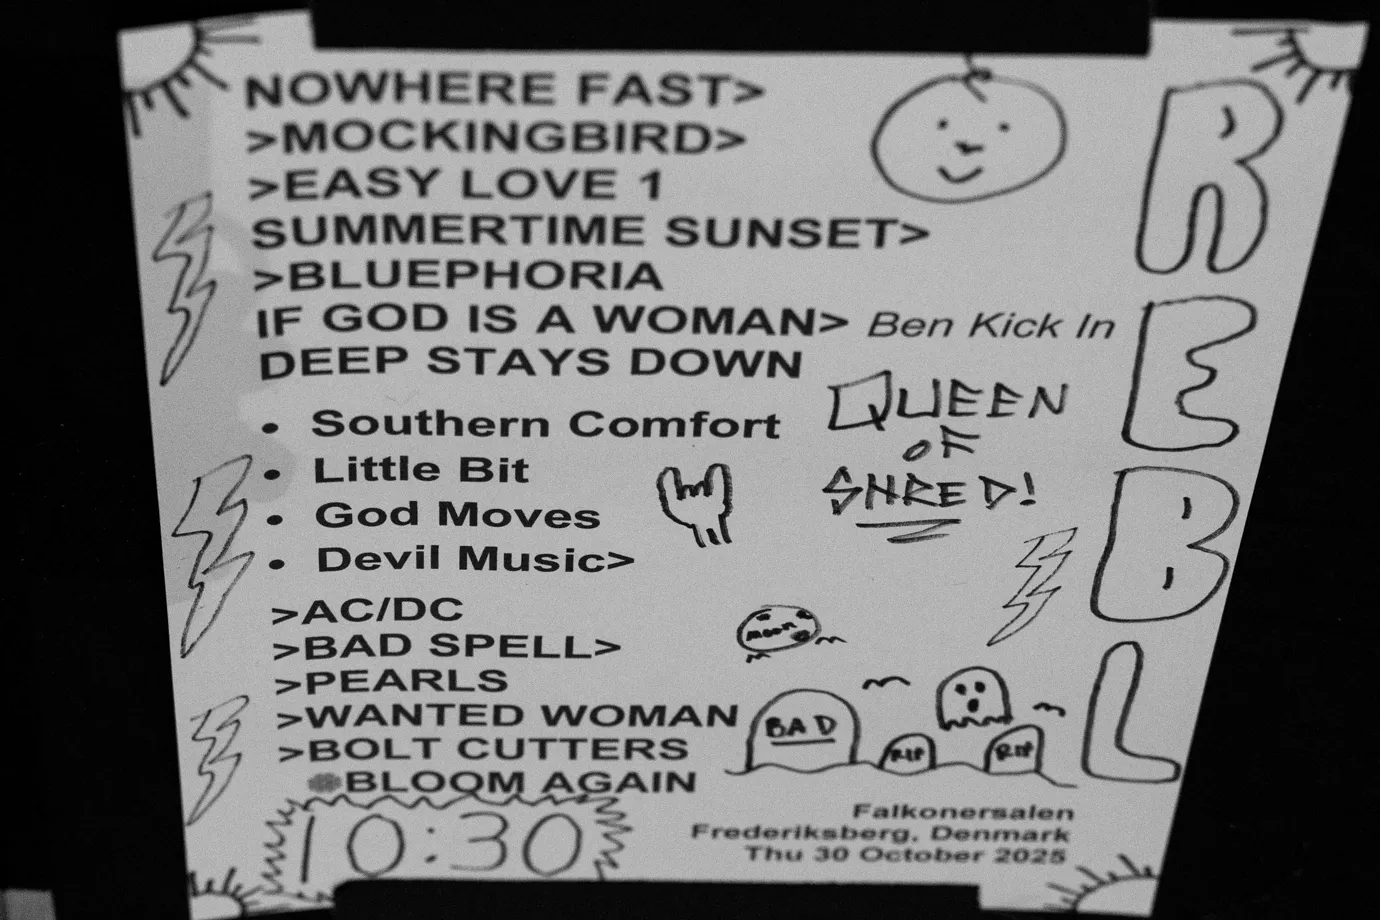 NOWHERE FAST>
>MOCKINGBIRD>
>EASY LOVE 1
SUMMERTIME SUNSET>
>BLUEPHORIA
IF GOD IS A WOMAN> Ben Kick In
DEEP STAYS DOWN
• Southern Comfort
• Little Bit
• God Moves
• Devil Music>
>AC/DC
>BAD SPELL>
>PEARLS
>WANTED WOMAN
>BOLT CUTTERS
BLOOM AGAIN
10:30
QUEEN
OF
SHRED!
moon
BAD
RIP
RIP
Falkonersalen
Frederiksberg, Denmark
Thu 30 October 2025
R
E
B
L